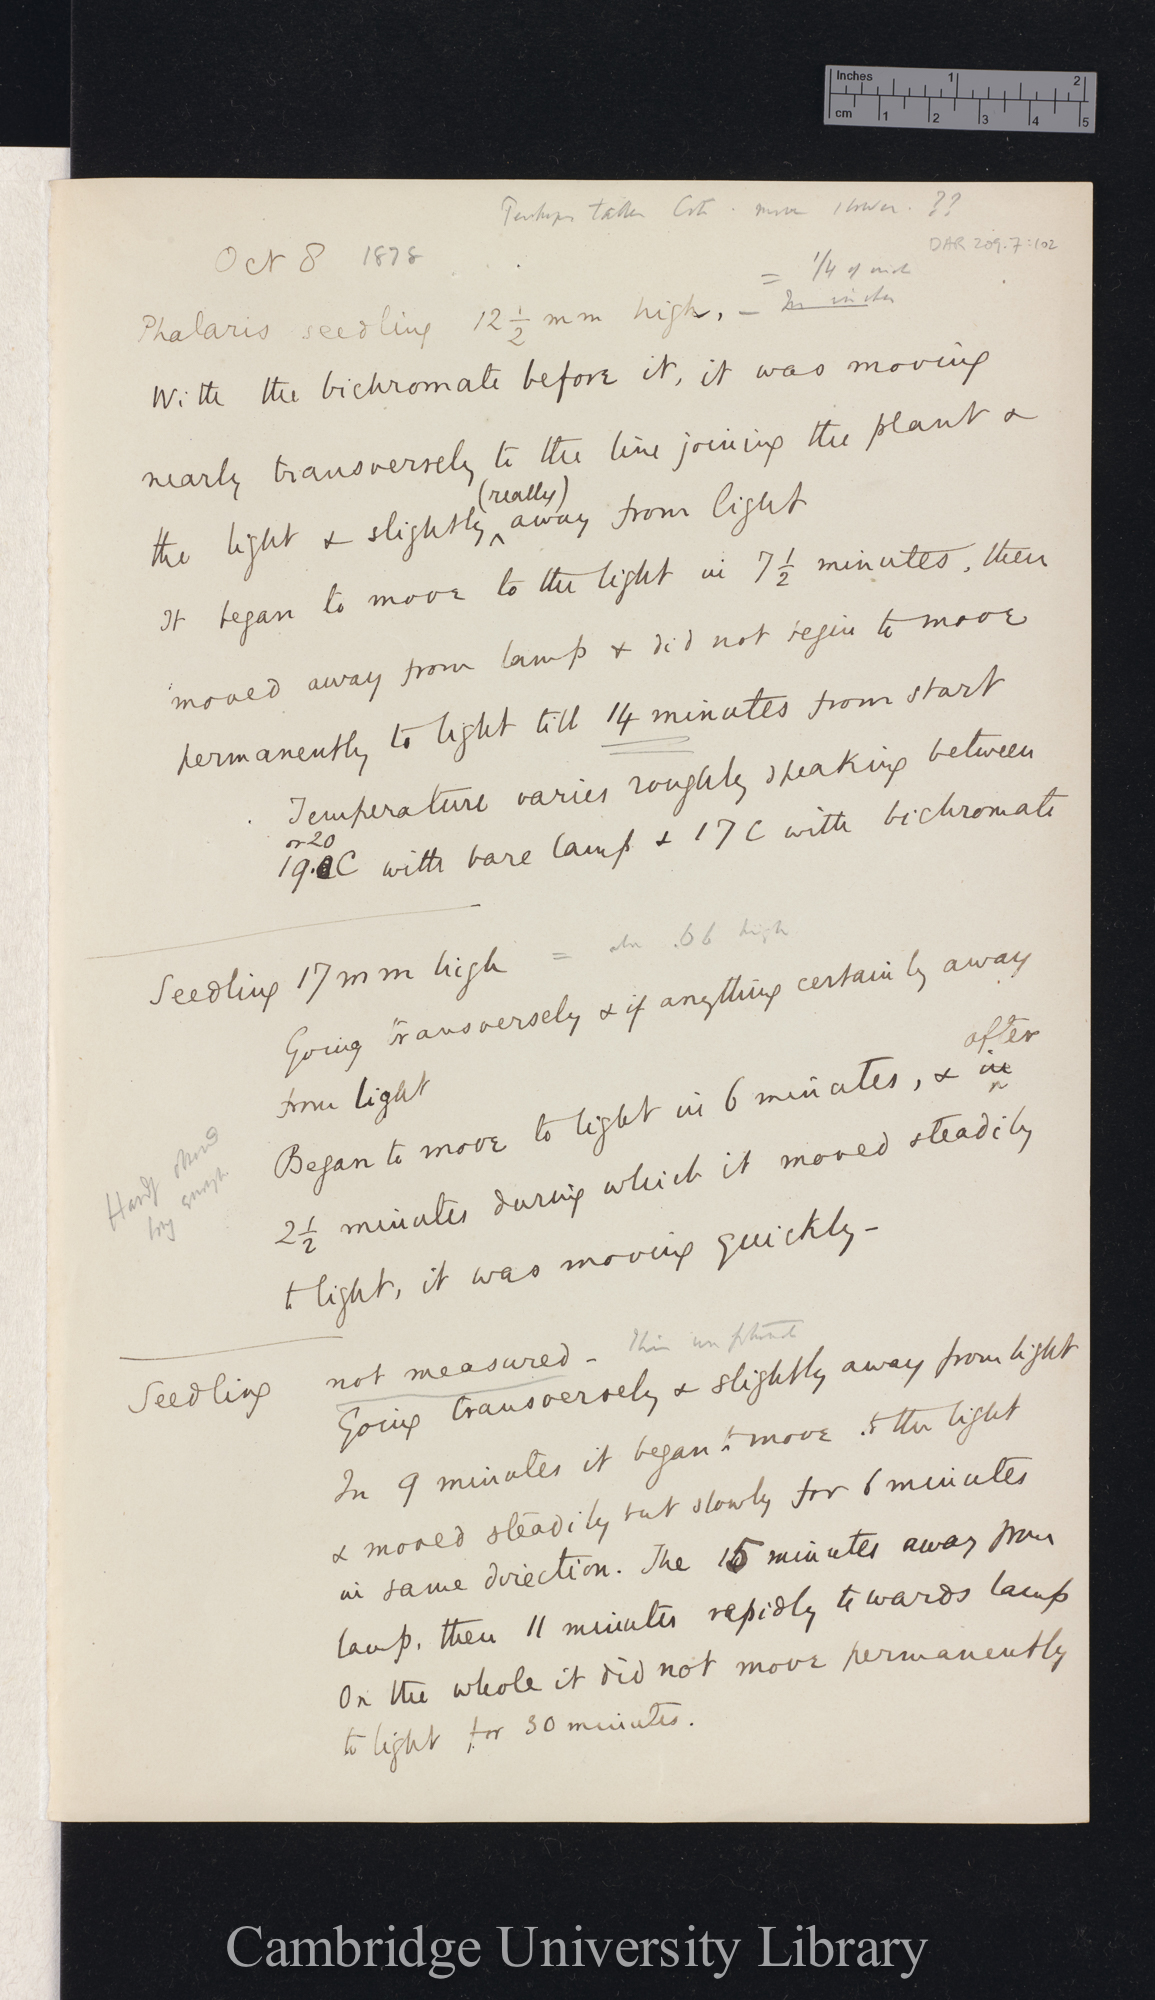 Inches 1 2
cm 1 2 3 4 5
Perhaps taller Cots. move slower. ??
DAR 209.7:102
Oct 8 1878
= 1/4 of inch
Phalaris seedling 12 1/2 mm high, - In inches
With the bichromate before it, it was moving
nearly transversely to the line joining the plant &
(really)
the light & slightly ^ away from light
It began to move to the light in 7 1/2 minutes, then
moved away from lamp & did not begin to move
permanently to light till 14 minutes from start
Temperature varies roughly speaking between
or 20
19. C with bare lamp & 17 C with bichromate
Seedling 17 mm high = .66 high
Going transversely & if anything certainly away
from light
after
Began to move to light in 6 minutes, & in
2 1/2 minutes during which it moved steadily
to light, it was moving quickly -
Hardly observed
long enough
Seedling not measured - This
Going transversely & slightly away from light
In 9 minutes it began to move to the light
& moved steadily but slowly for 6 minutes
in same direction. The 15 minutes away from
lamp, then 11 minutes rapidly towards lamp
On the whole it did not move permanently
to light for 30 minutes.
Cambridge University Library